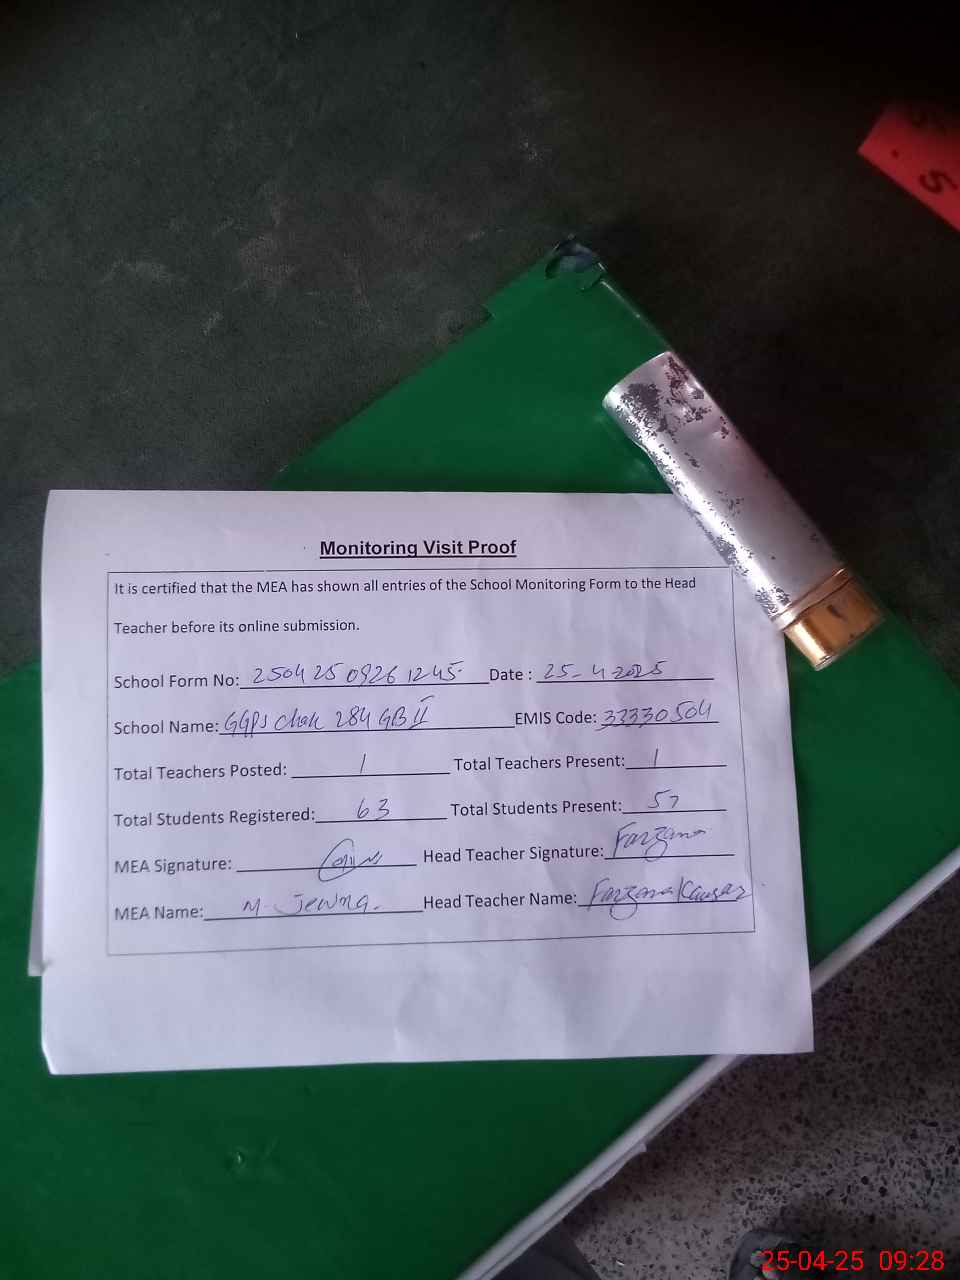 Monitoring Visit Proof
It is certified that the MEA has shown all entries of the School Monitoring Form to the Head
Teacher before its online submission.
School Form No: 250425 0926 1245 Date : 25-4-2025
School Name: GGPS Chak 284 GB II EMIS Code: 33330504
Total Teachers Posted: 1 Total Teachers Present: 1
Total Students Registered: 63 Total Students Present: 57
MEA Signature: Head Teacher Signature: Farzana
MEA Name: M. Head Teacher Name: Farzana Kausar
25-04-25 09:28